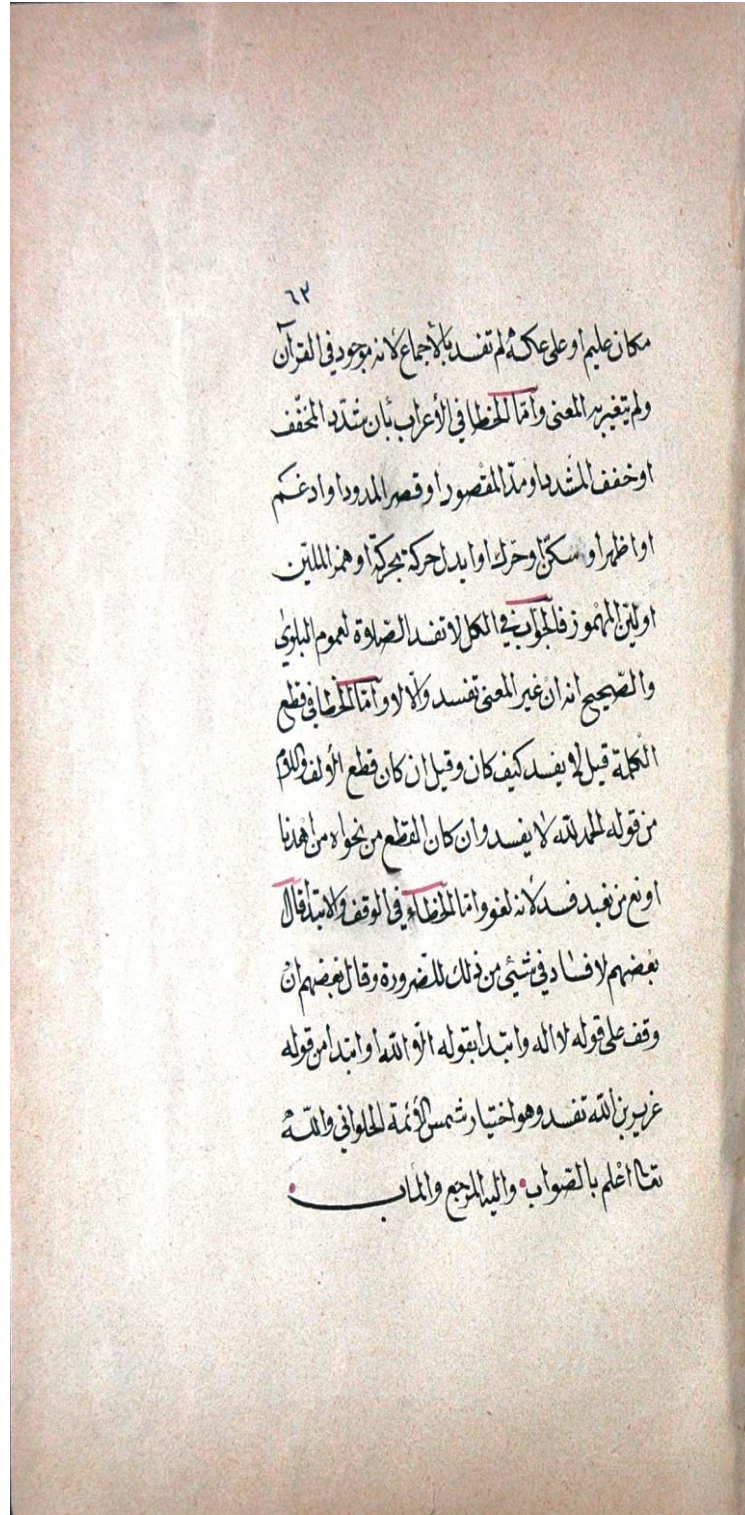 ٦٣
مكان عليم او على عكسه لم تفسد بالأجماع لأنه موجود في القرآن
ولم يتغير به المعنى وأمّا الخطا في الأعراب بأن شدّد المخفّف
او خفف المشدد او مدّ المقصور او قصر الممدود او ادغم
او اظهر او سكّن او حرّك او ابدل حركة بحركة او همز المليّن
او ليّن المهموز فالجواب في الكل لا تفسد الصّلوة لعموم البلوي
والصّحيح انه ان غير المعنى تفسد والّا لا وامّا الخطا في قطع
الكلمة قيل لا يفسد كيف كان وقيل ان كان قطع الألف واللام
من قوله الحمد لله لا يفسد وان كان القطع من نحو اه من اهدنا
او نع من نعبد فسد لأنه لغو وامّا الخطاء في الوقف والابتدا قال
بعضهم لا فساد في شئي من ذلك للضرورة وقال بعضهم ان
وقف على قوله لا اله وابتدا بقوله الّا الله او ابتدا من قوله
عزير بن الله تفسد وهو اختيار شمس الأئمة الحلواني والله
تعا اعلم بالصّواب واليه المرجع والمأب